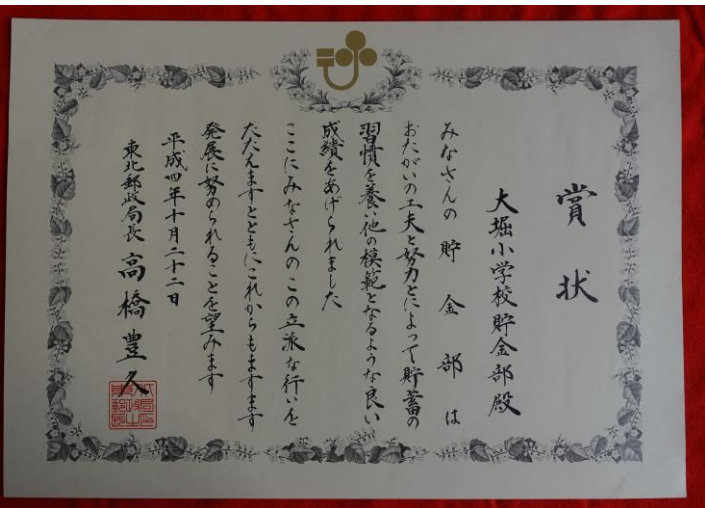 賞状
大堀小学校貯金部殿
みなさんの貯金部は
おたがいの工夫と努力とによって貯蓄の
習慣を養い他の模範となるような良い
成績をあげられました
ここにみなさんのこの立派な行いを
たたえますとともにこれからもますます
発展に努められることを望みます
平成四年十月二十二日
東北郵政局長 高橋豊久